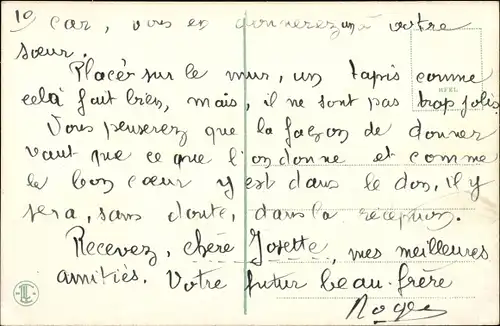 10 car, vous en donnerez un à votre
sœur.
Placés sur le mur, un tapis comme
celà fait bien, mais, il ne sont pas trop jolis.
Vous penserez que la façon de donner
vaut que ce que l'on donne et comme
le bon cœur y est dans le don, il y
sera, sans doute, dans la réception.
Recevez, chère Josette, mes meilleures
amitiés. Votre futur beau-frère
Roger